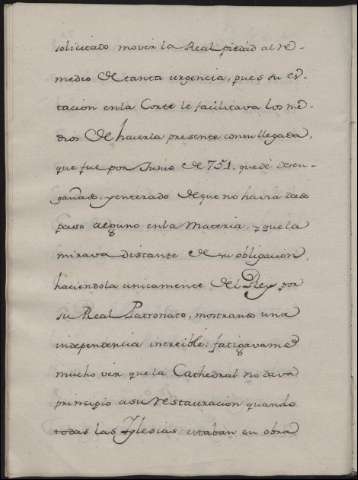 solicitado mover la Real piedad al re-
medio de tanta urgencia, pues su es-
tacion en la Corte le facilitava los me-
dios de hacerla presente con su llegada,
que fue por Junio de 751, quedé desen-
gañado, y enterado de que no havia dado
paso alguno en la Materia, y que la
mirava distante de su obligacion,
haciendola unicamente del Rey por
su Real Patronato, mostrando una
independencia increible: fatigavame
mucho ver que la Cathedral no dava
principio a su restauracion quando
todas las Iglesias estaban en obra